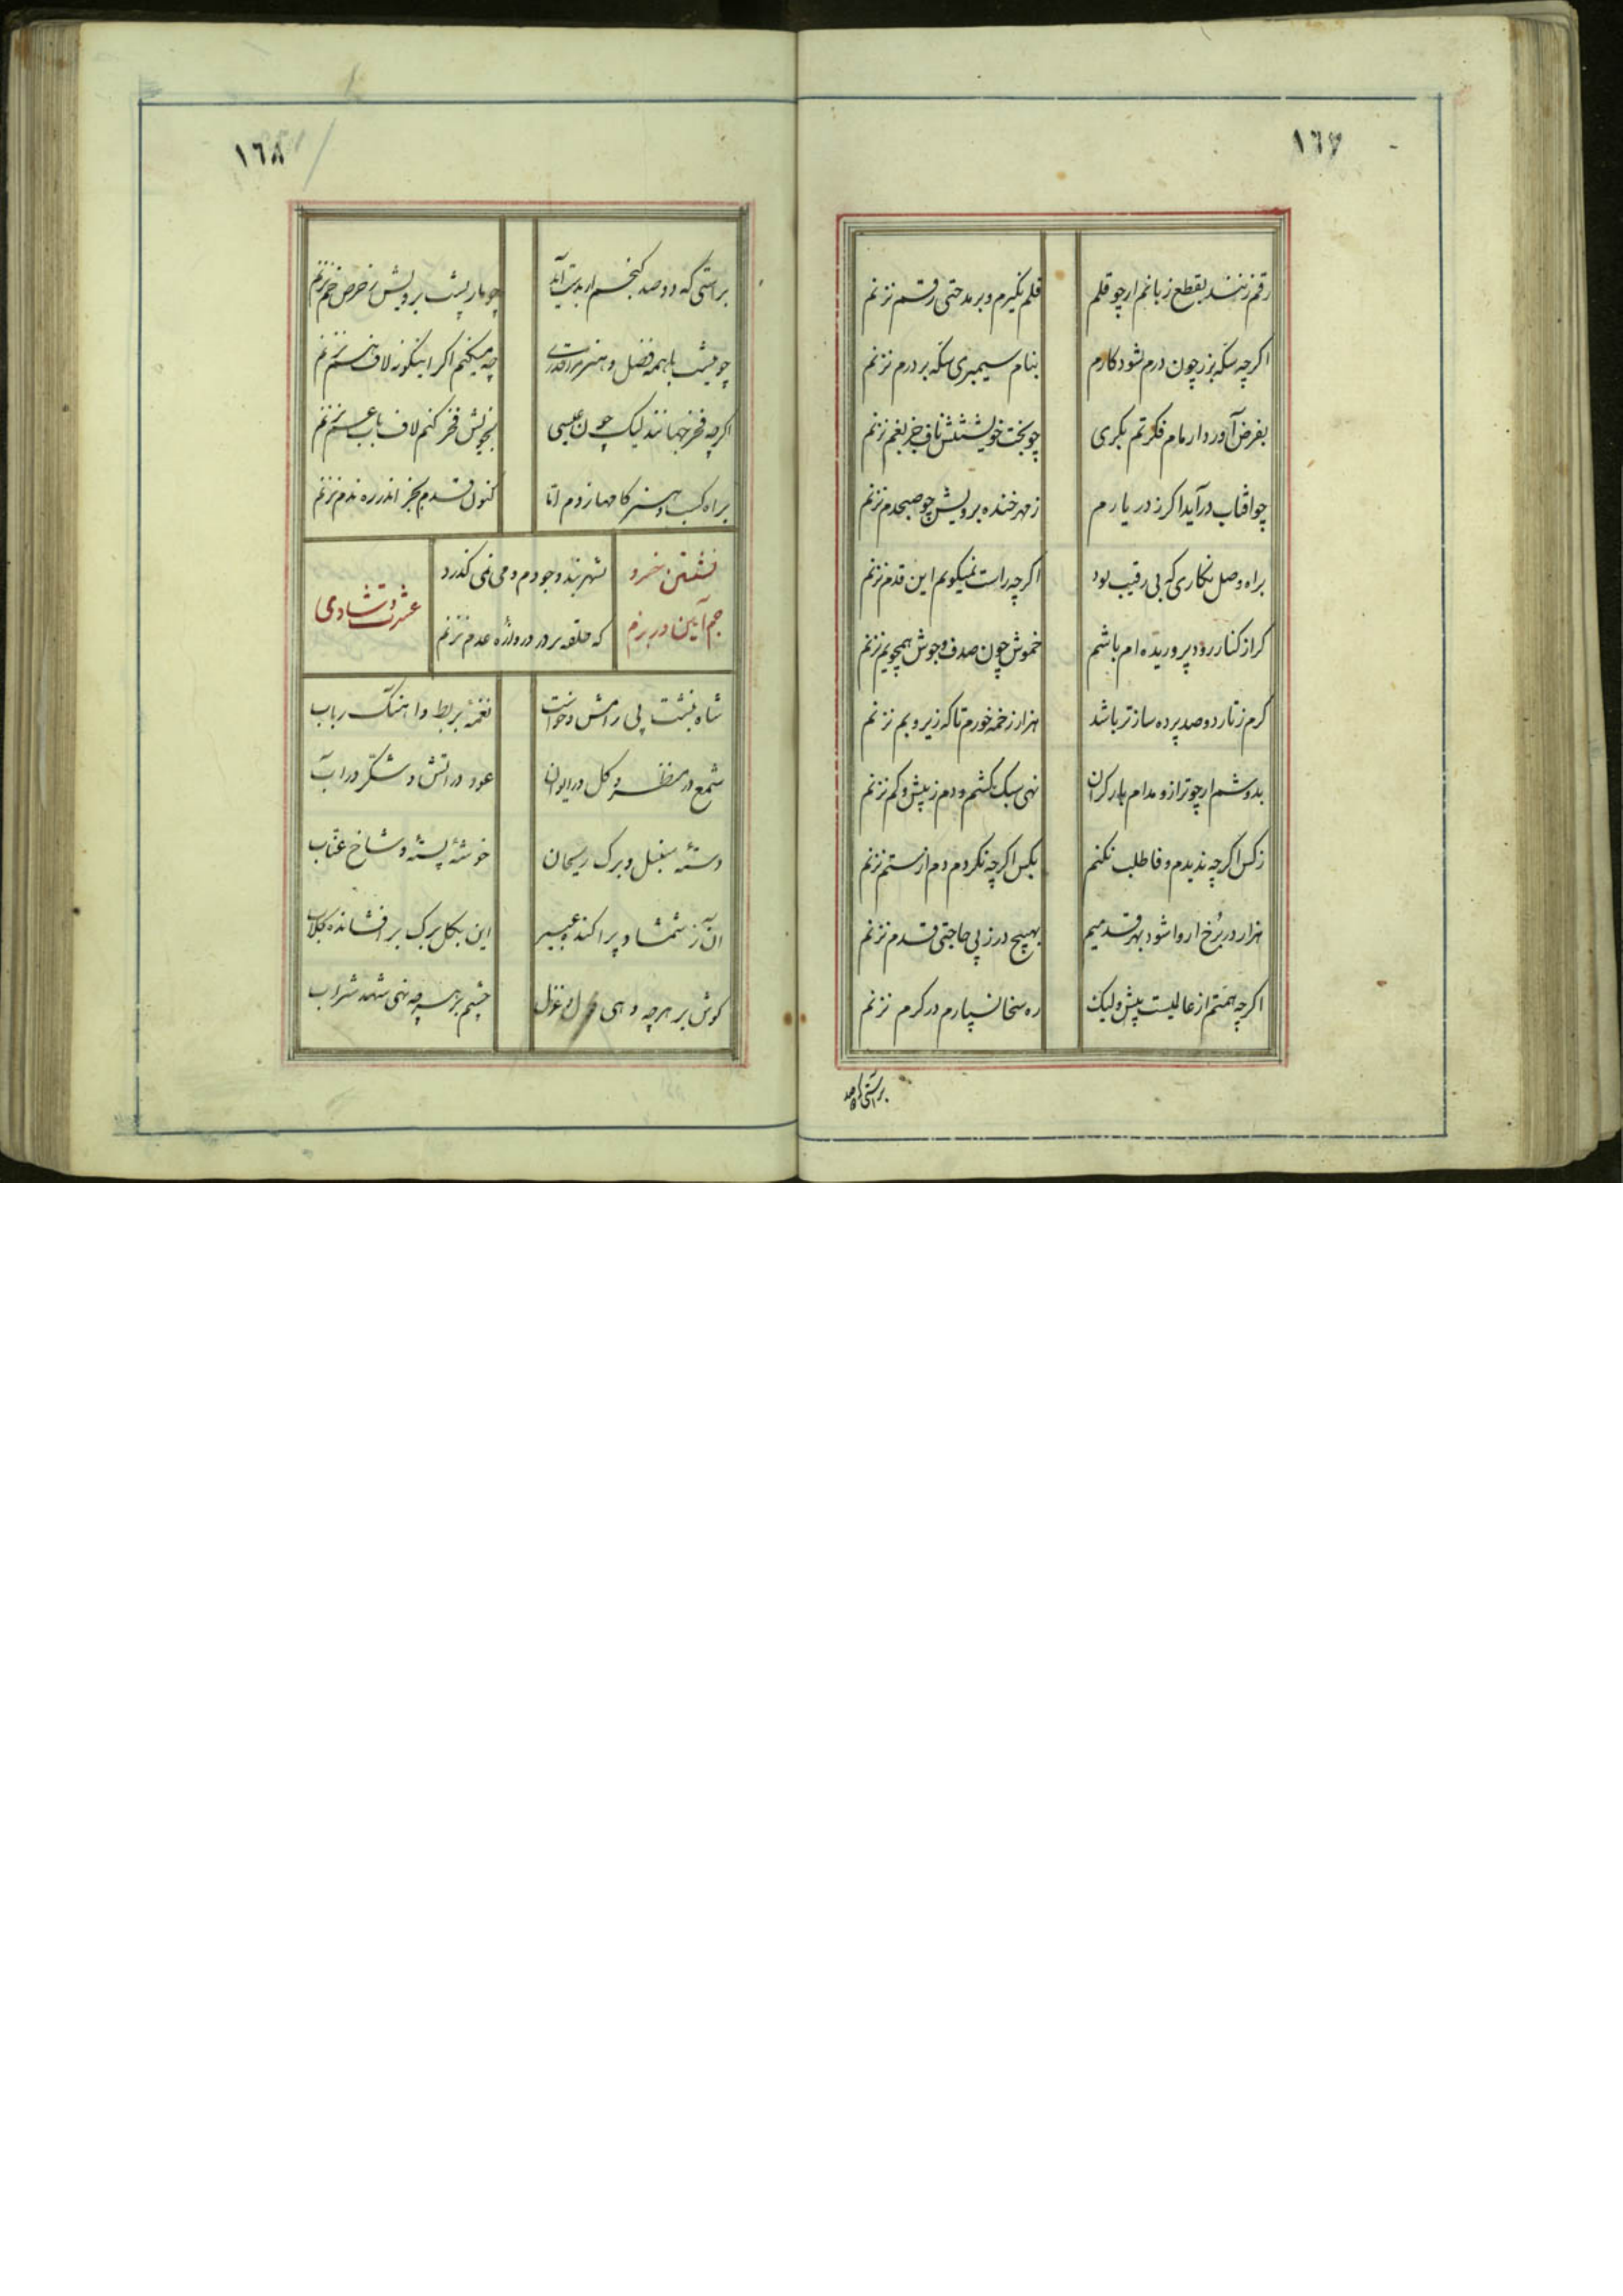 ١٦٧
رقم زنند بقطع زبانم ار چو قلم
قلم نگیرم و بر مدحتی رقم نزنم
اگرچه سکه بزر چون درم شود کارم
بنام سیمبری سکه بر درم نزنم
بفرض آورد ار مام فکرتم بکری
چو بخت خویشتنش ناف جز بغم نزنم
چو افتاب درآید اگر ز در یارم
ز مهر خنده برویش چو صبحدم نزنم
براه وصل نگاری که بی رقیب بود
اگرچه راست نمیگویم این قدم نزنم
گر از کنار رود پروریده ام باشم
خموش چون صدف و جوش همچو یم نزنم
گرم ز تار دو صد پرده ساز تر باشد
هزار زخمه خورم تا که زیر و بم نزنم
بدوشم ار چو ترازو مدام بار گران
نهی سبک نکشم و دم ز بیش و کم نزنم
ز کس اگرچه ندیدم وفا طلب نکنم
بکس اگرچه نکردم دم از ستم نزنم
هزار در برخ ار وا شود بهر قدمیم
بهیچ در ز پی حاجتی قدم نزنم
اگرچه همتم از عالیست پیش ولیک
ره سخا نسپارم در کرم نزنم
براستی که دوصد
١٦٨
براستی که دو صد گنجم ار بدست آید
چو مار پشت برویش ز حرص خم نزنم
چو نیست با همه فضل و هنر مرا قدری
چه میکنم اگر اینگونه لاف هم نزنم
اگرچه فخر جهانند لیک چون عیسی
بخویش فخر کنم لاف باب عم نزنم
براه کسب هنر گامها زدم اما
کنون قدم بجز اندر ره ندم نزنم
نشستن خسرو
جم آیین در بزم
بشهر بند وجودم دمی نمی گذرد
که حلقه بر در دروازه عدم نزنم
عشرت و شادمی
شاه بنشست پی رامش و خواست
نغمه بربط و اهنگ رباب
شمع در منظر و گل در ایوان
عود در اتش و شکر در آب
دسته سنبل و برگ ریحان
خوشه پسته و شاخ عناب
ان ز شمشاد پراکنده عبیر
این بگل برگ بر افشانده گلاب
گوش بر هرچه دهی قول و غزل
چشم بر هرچه نهی شهد شراب